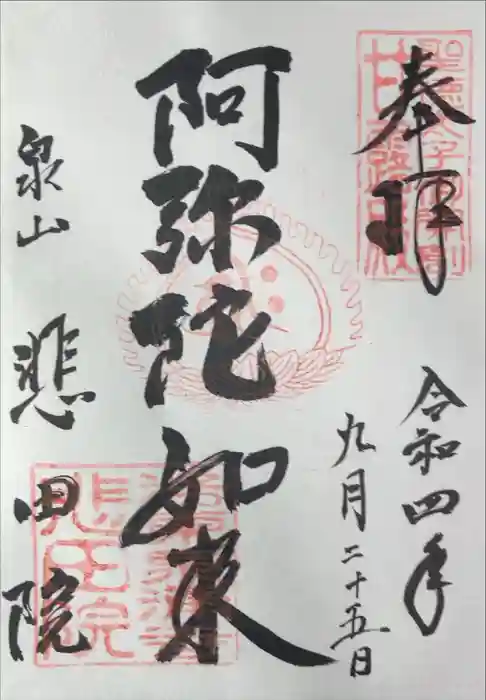 奉拝
令和四年
九月二十五日
阿弥陀如来
泉山
悲田院
悲田院